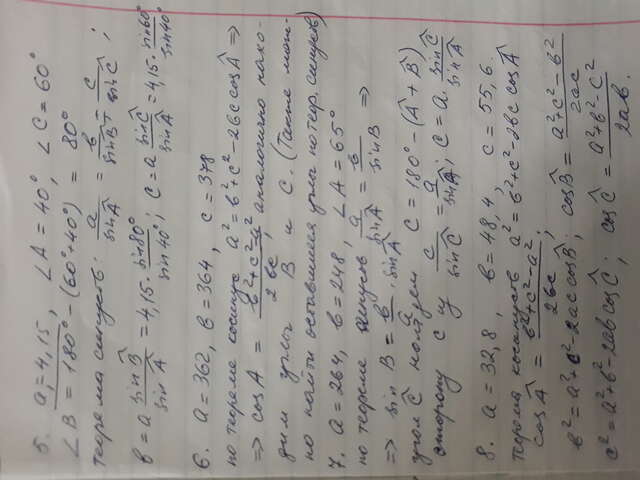 5. a = 4,15, ∠A = 40°, ∠C = 60°
∠B = 180° – (60° + 40°) = 80°
теорема синусов: a/sin Â = в/sin B̂ = c/sin Ĉ;
в = a sin B̂/sin Â = 4,15 · sin 80°/sin 40°; c = a sin Ĉ/sin Â = 4,15 · sin 60°/sin 40°
6. a = 362, в = 364, c = 378
по теореме косинус a² = в² + c² – 2вc cos Â ⇒
⇒ cos A = в² + c² – a²/2вc; аналогично нахо-
дим углы B и C. (Также мож-
но найти оставшиеся углы по теор. синусов)
7. a = 264, в = 248, ∠A = 65°
по теореме синусов a/sin Â = в/sin B ⇒
⇒ sin B = в/a · sin Â
угол Ĉ найдем C = 180° – (Â + B̂)
сторону c из c/sin Ĉ = a/sin Â; c = a · sin Ĉ/sin Â
8. a = 32,8, в = 48,4, c = 55,6.
теорема косинусов a² = в² + c² – 2вc cos Â
cos Â = в² + c² – a²/2вc;
в² = a² + c² – 2ac cos B̂; cos B̂ = a² + c² – в²/2ac
c² = a² + в² – 2ab cos Ĉ; cos Ĉ = a² + в² – c²/2ab.